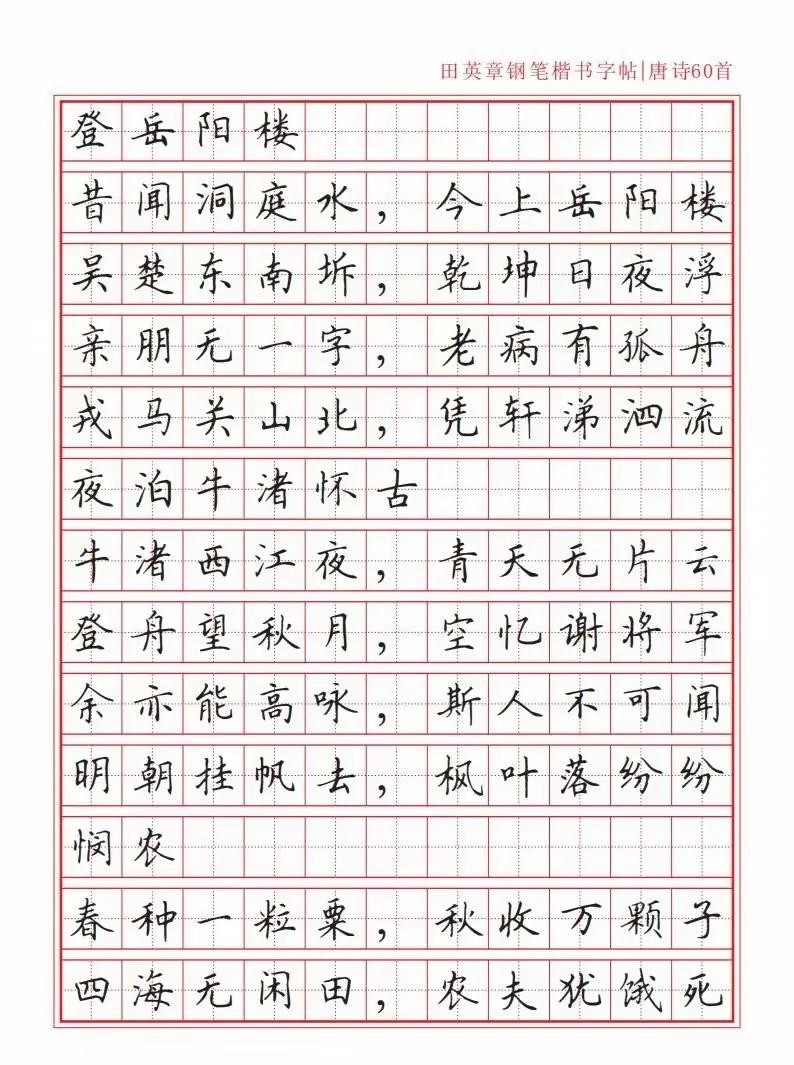 田英章钢笔楷书字帖|唐诗60首
登岳阳楼
昔闻洞庭水，今上岳阳楼
吴楚东南坼，乾坤日夜浮
亲朋无一字，老病有孤舟
戎马关山北，凭轩涕泗流
夜泊牛渚怀古
牛渚西江夜，青天无片云
登舟望秋月，空忆谢将军
余亦能高咏，斯人不可闻
明朝挂帆去，枫叶落纷纷
悯农
春种一粒粟，秋收万颗子
四海无闲田，农夫犹饿死